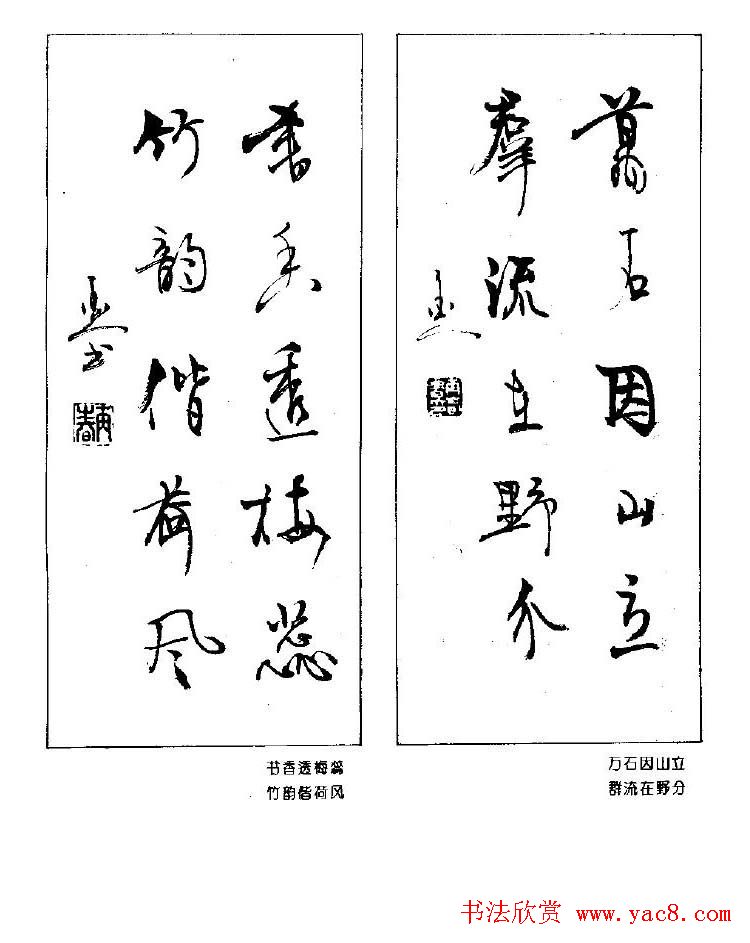 萬石因山立
羣流在野分
書香透梅蕊
竹韵偕荷风
万石因山立
群流在野分
书香透梅蕊
竹韵偕荷风
书法欣赏 www.yac8.com